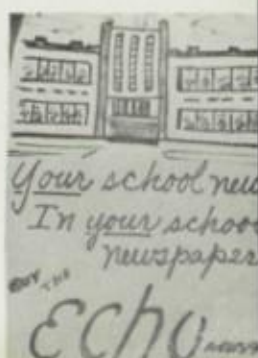 Your school new
In your school
newspaper
BUY THE
Echo